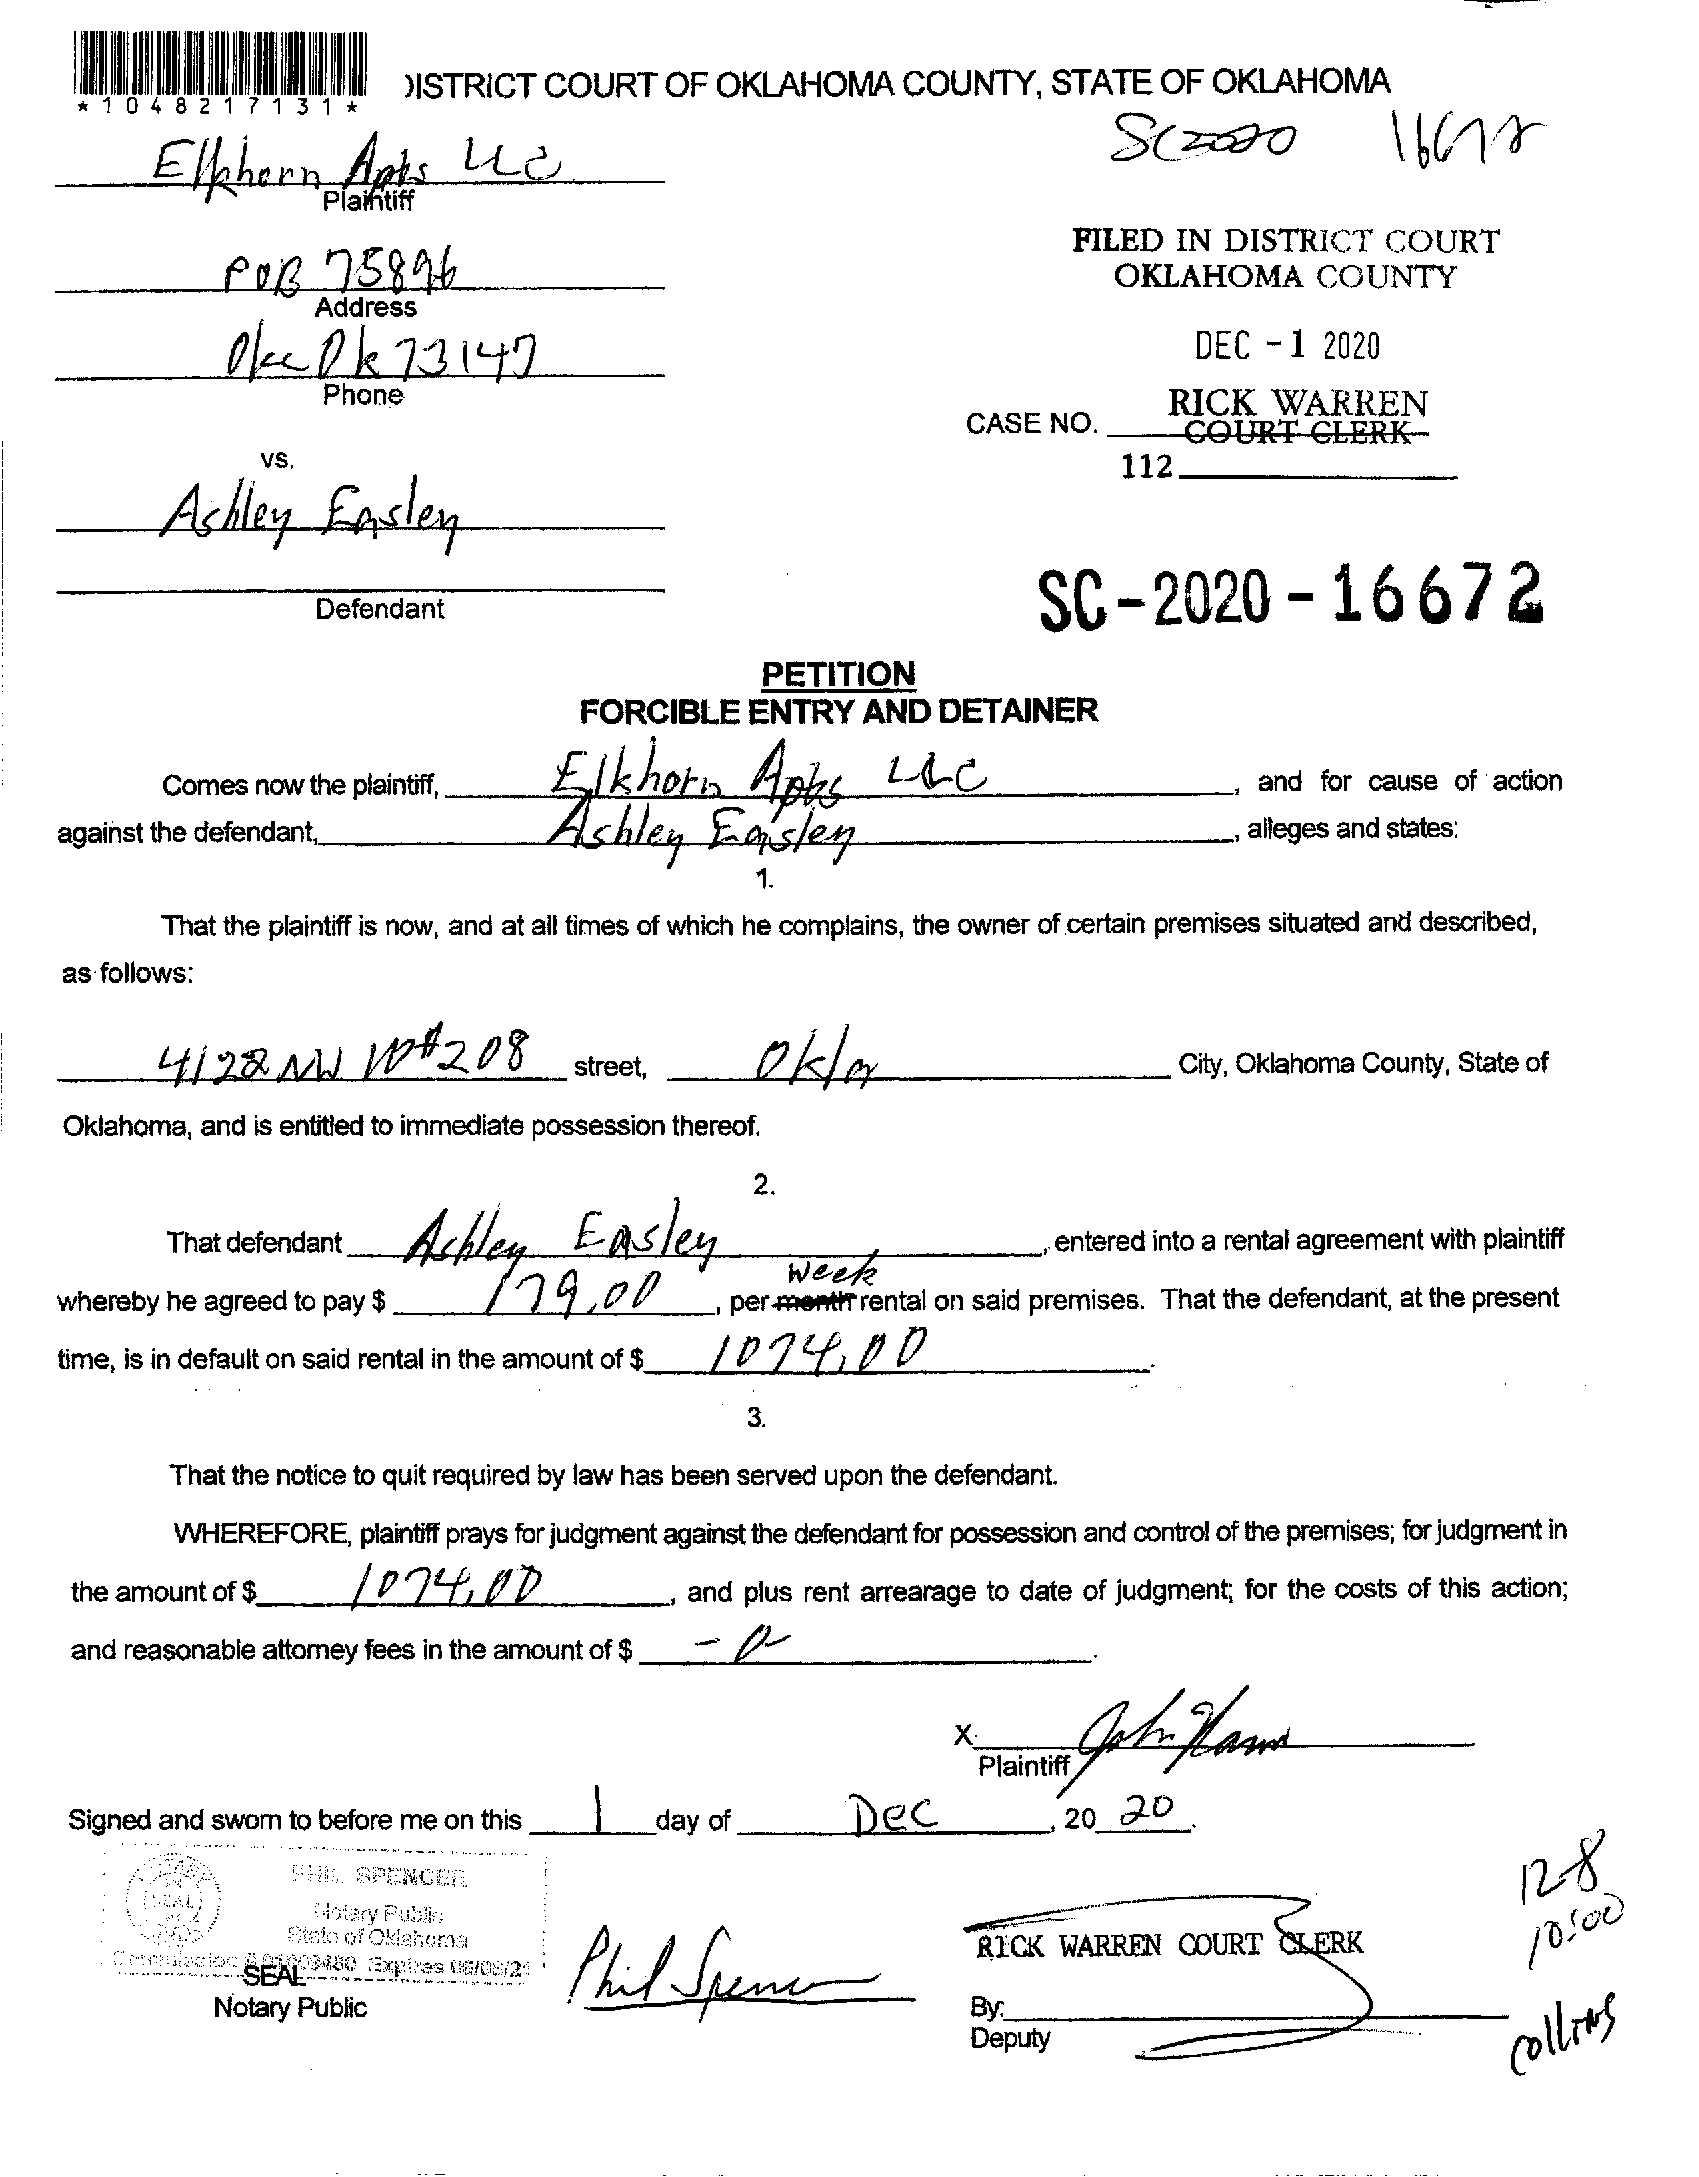 *1048217131*
DISTRICT COURT OF OKLAHOMA COUNTY, STATE OF OKLAHOMA
SC2020 16672
Elkhorn Apts LLC
Plaintiff
POB 75896
Address
FILED IN DISTRICT COURT
OKLAHOMA COUNTY
Okc Ok 73147
Phone
DEC -1 2020
RICK WARREN
CASE NO. COURT CLERK
112
vs.
Ashley Easley
Defendant
SC-2020-16672
PETITION
FORCIBLE ENTRY AND DETAINER
Comes now the plaintiff, Elkhorn Apts LLC, and for cause of action
against the defendant, Ashley Easley, alleges and states:
1.
That the plaintiff is now, and at all times of which he complains, the owner of certain premises situated and described,
as follows:
4128 NW 10 #208 street, Okla City, Oklahoma County, State of
Oklahoma, and is entitled to immediate possession thereof.
2.
That defendant Ashley Easley, entered into a rental agreement with plaintiff
week
whereby he agreed to pay $ 179.00, per month rental on said premises. That the defendant, at the present
time, is in default on said rental in the amount of $ 1074.00.
3.
That the notice to quit required by law has been served upon the defendant.
WHEREFORE, plaintiff prays for judgment against the defendant for possession and control of the premises; for judgment in
the amount of $ 1074.00, and plus rent arrearage to date of judgment; for the costs of this action;
and reasonable attorney fees in the amount of $ -0-.
X
Plaintiff
Signed and sworn to before me on this 1 day of Dec, 20 20.
PHIL SPENCER
(SEAL)
Notary Public
State of Oklahoma
SEAL
Notary Public
Phil Spencer
RICK WARREN COURT CLERK
By:
Deputy
12-8
10:00
collins